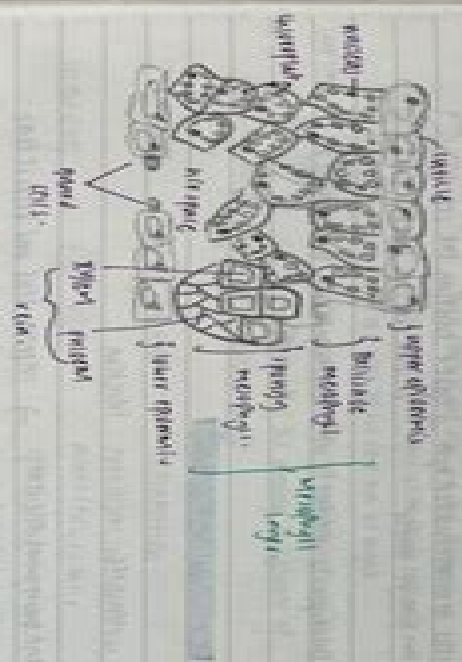 cuticle
nucleus
upper epidermis
Palisade
mesophyll
spongy
mesophyll
mesophyll
layer
lower epidermis
air space
guard
cells
xylem
phloem
vein